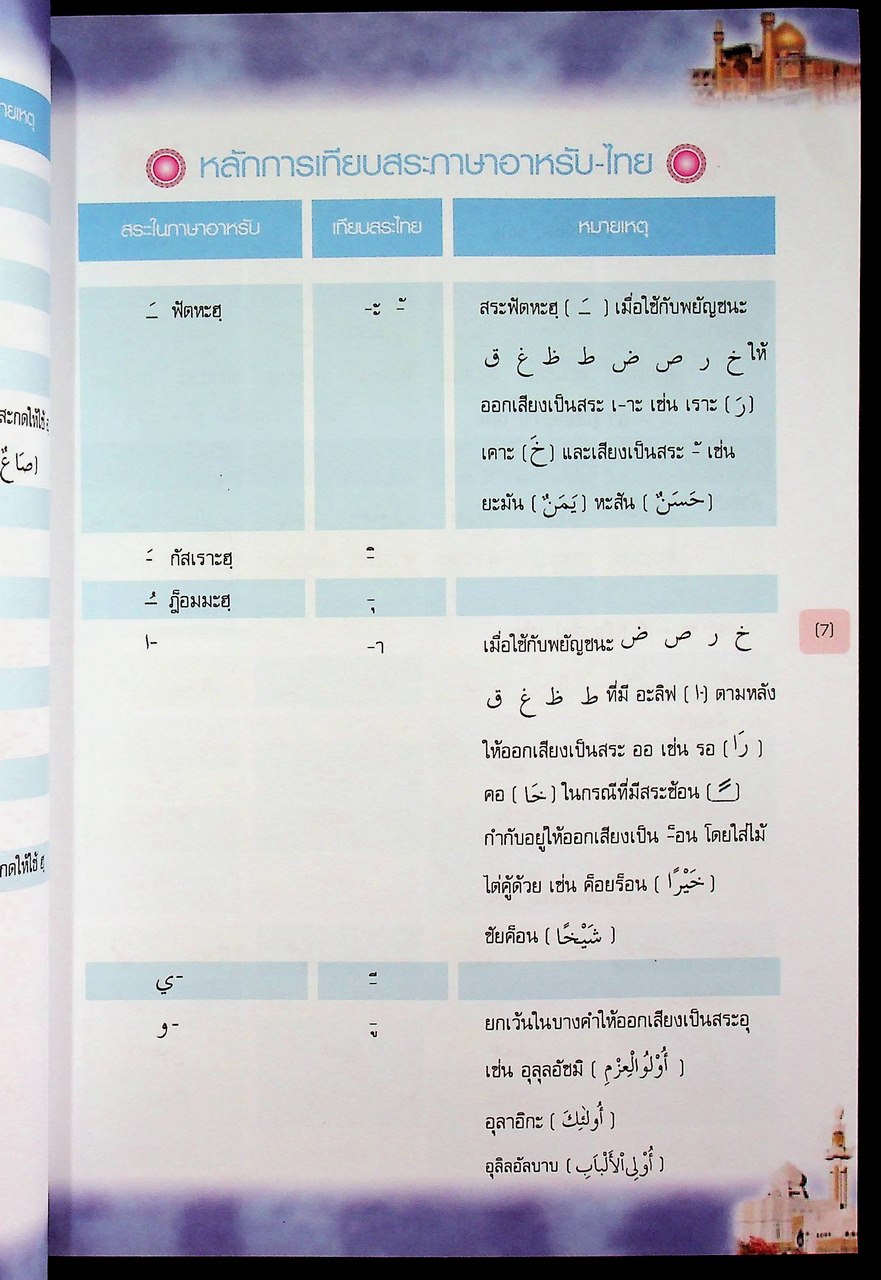 ายเหตุ
สะกดให้ใช้
(صَاعٌ)
กดให้ใช้ ฮฺ
หลักการเทียบสระภาษาอาหรับ-ไทย
สระในภาษาอาหรับ เทียบสระไทย หมายเหตุ
ـَ ฟัตหะฮฺ -ะ -ั สระฟัตหะฮฺ ( ـَ ) เมื่อใช้กับพยัญชนะ
خ ر ص ض ط ظ غ ق ให้
ออกเสียงเป็นสระ เ-าะ เช่น เราะ (رَ)
เคาะ (خَ) และเสียงเป็นสระ -ั เช่น
ยะมัน (يَمَنٌ) หะสัน (حَسَنٌ)
กัสเราะฮฺ -ิ
ـُ ฎ็อมมะฮฺ -ุ
ـا -า เมื่อใช้กับพยัญชนะ خ ر ص ض
ط ظ غ ق ที่มี อะลิฟ (ـا) ตามหลัง
ให้ออกเสียงเป็นสระ ออ เช่น รอ (رَا)
คอ (خَا) ในกรณีที่มีสระซ้อน (ـً)
กำกับอยู่ให้ออกเสียงเป็น -็อน โดยใส่ไม้
ไต่คู้ด้วย เช่น ค็อยร็อน (خَيْرًا)
ชัยค็อน (شَيْخًا)
-ي -ี
-و -ู ยกเว้นในบางคำให้ออกเสียงเป็นสระอุ
เช่น อุลุลอัซมิ (أُوْلُوالْعِزْمِ)
อุลาอิกะ (أُولٰئِكَ)
อุลิลอัลบาบ (أُوْلِى الأَلْبَابِ)
(7)